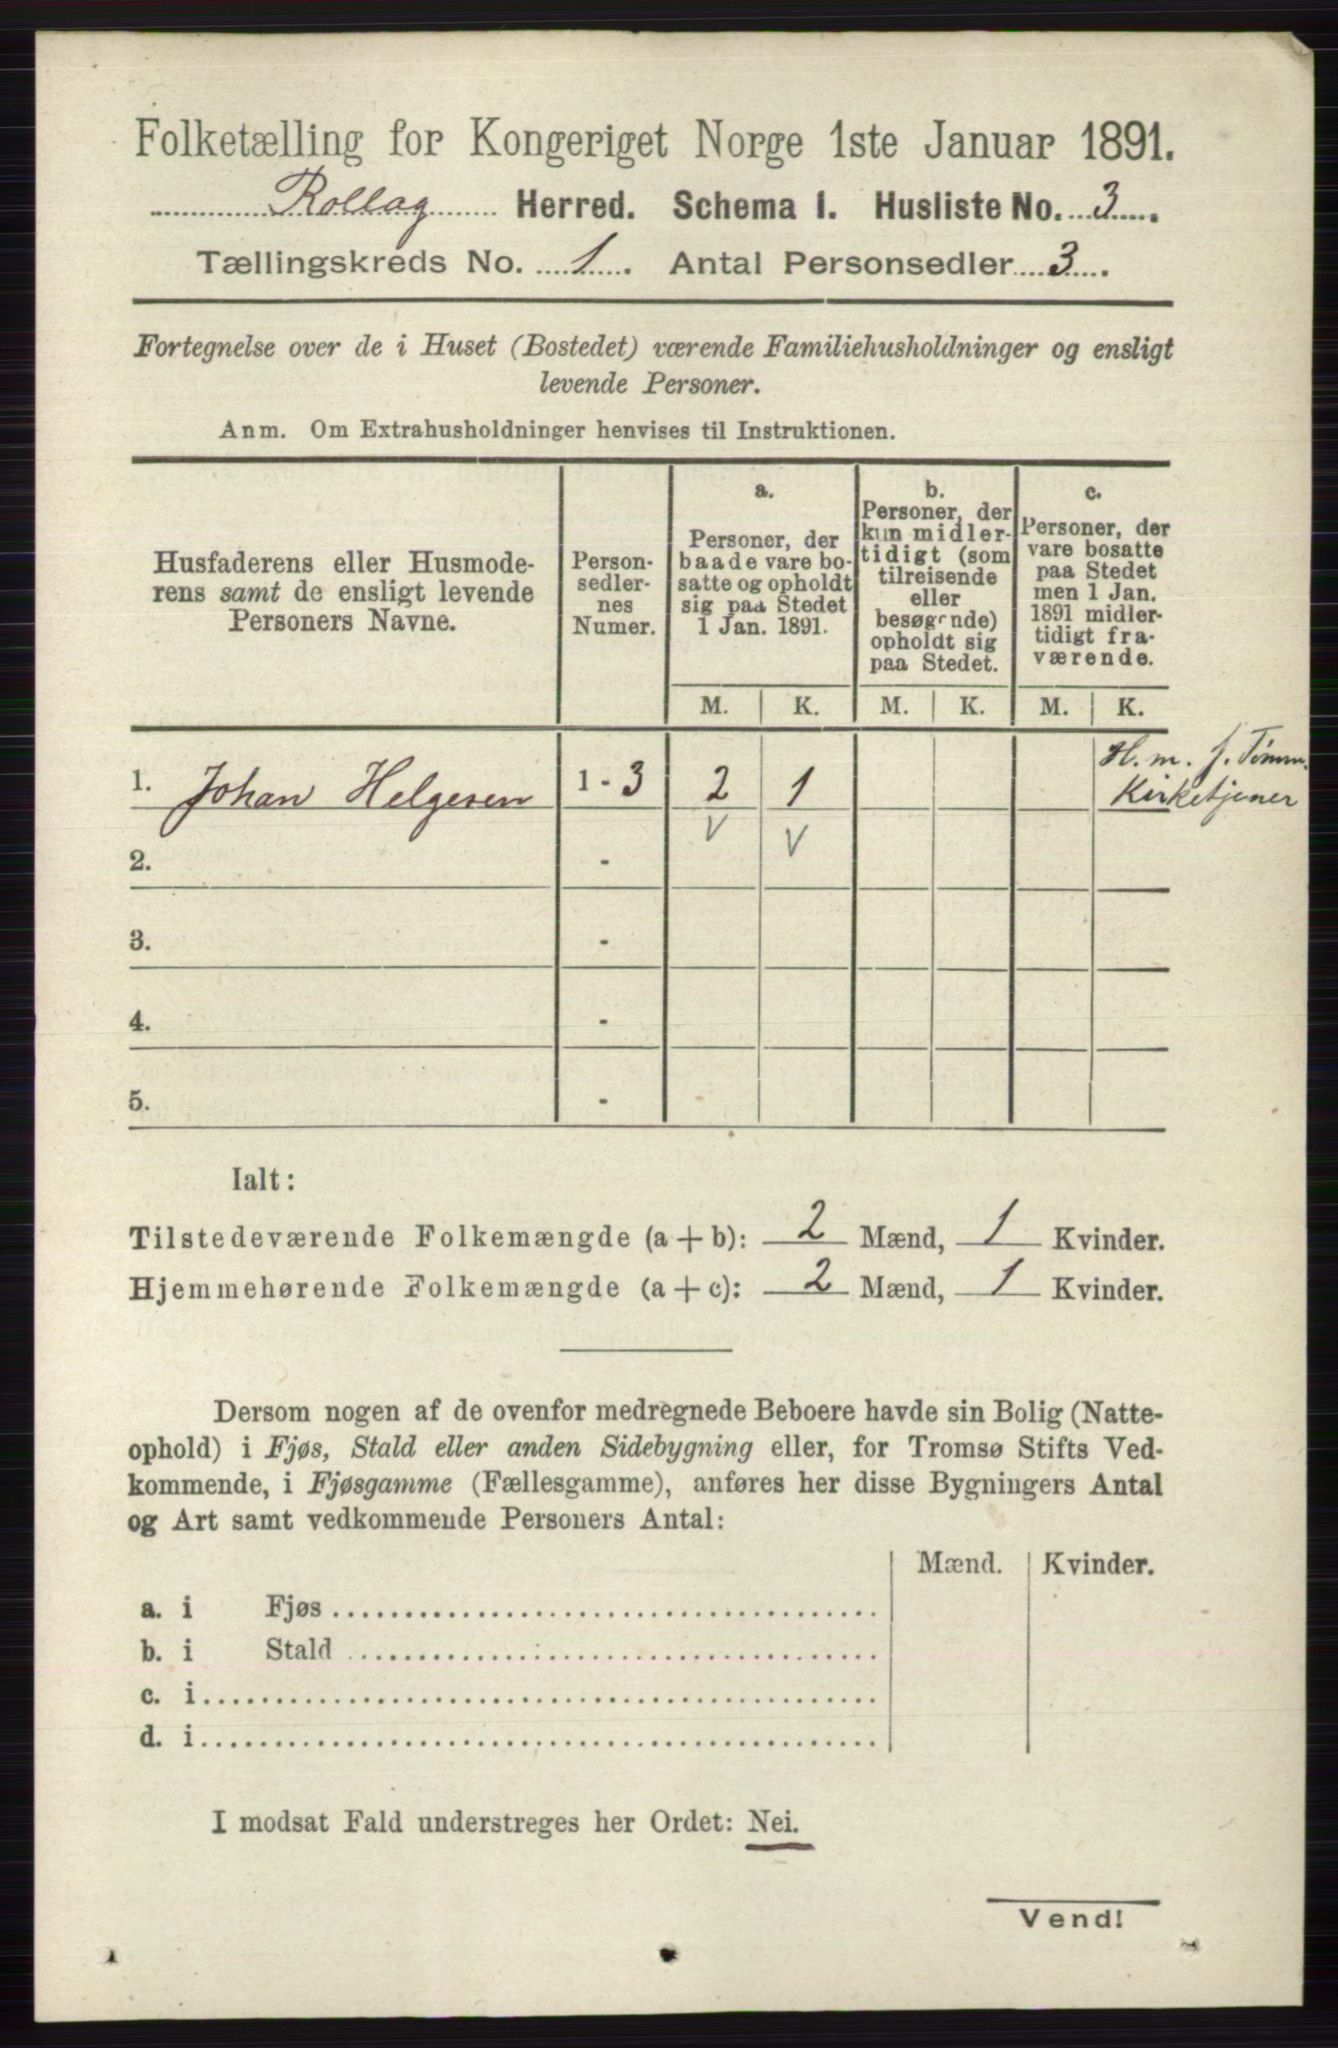 Folketælling for Kongeriget Norge 1ste Januar 1891.
Rollag Herred. Schema I. Husliste No. 3.
Tællingskreds No. 1. Antal Personsedler 3.
Fortegnelse over de i Huset (Bostedet) værende Familiehusholdninger og ensligt
levende Personer.
Anm. Om Extrahusholdninger henvises til Instruktionen.
Husfaderens eller Husmode-
rens samt de ensligt levende
Personers Navne.
Person-
sedler-
nes
Numer.
a.
Personer, der
baade vare bo-
satte og opholdt
sig paa Stedet
1 Jan. 1891.
b.
Personer, der
kun midler-
tidigt (som
tilreisende
eller
besøgende)
opholdt sig
paa Stedet.
c.
Personer, der
vare bosatte
paa Stedet
men 1 Jan.
1891 midler-
tidigt fra-
værende.
M. K. M. K. M. K.
1. Johan Helgesen 1 - 3 2 1
H. m. J. Tømm.
Kirketjener
V V
2. -
3. -
4. -
5. -
Ialt:
Tilstedeværende Folkemængde (a + b): 2 Mænd, 1 Kvinder.
Hjemmehørende Folkemængde (a + c): 2 Mænd, 1 Kvinder.
Dersom nogen af de ovenfor medregnede Beboere havde sin Bolig (Natte-
ophold) i Fjøs, Stald eller anden Sidebygning eller, for Tromsø Stifts Ved-
kommende, i Fjøsgamme (Fællesgamme), anføres her disse Bygningers Antal
og Art samt vedkommende Personers Antal:
Mænd. Kvinder.
a. i Fjøs
b. i Stald
c. i
d. i
I modsat Fald understreges her Ordet: Nei.
Vend!